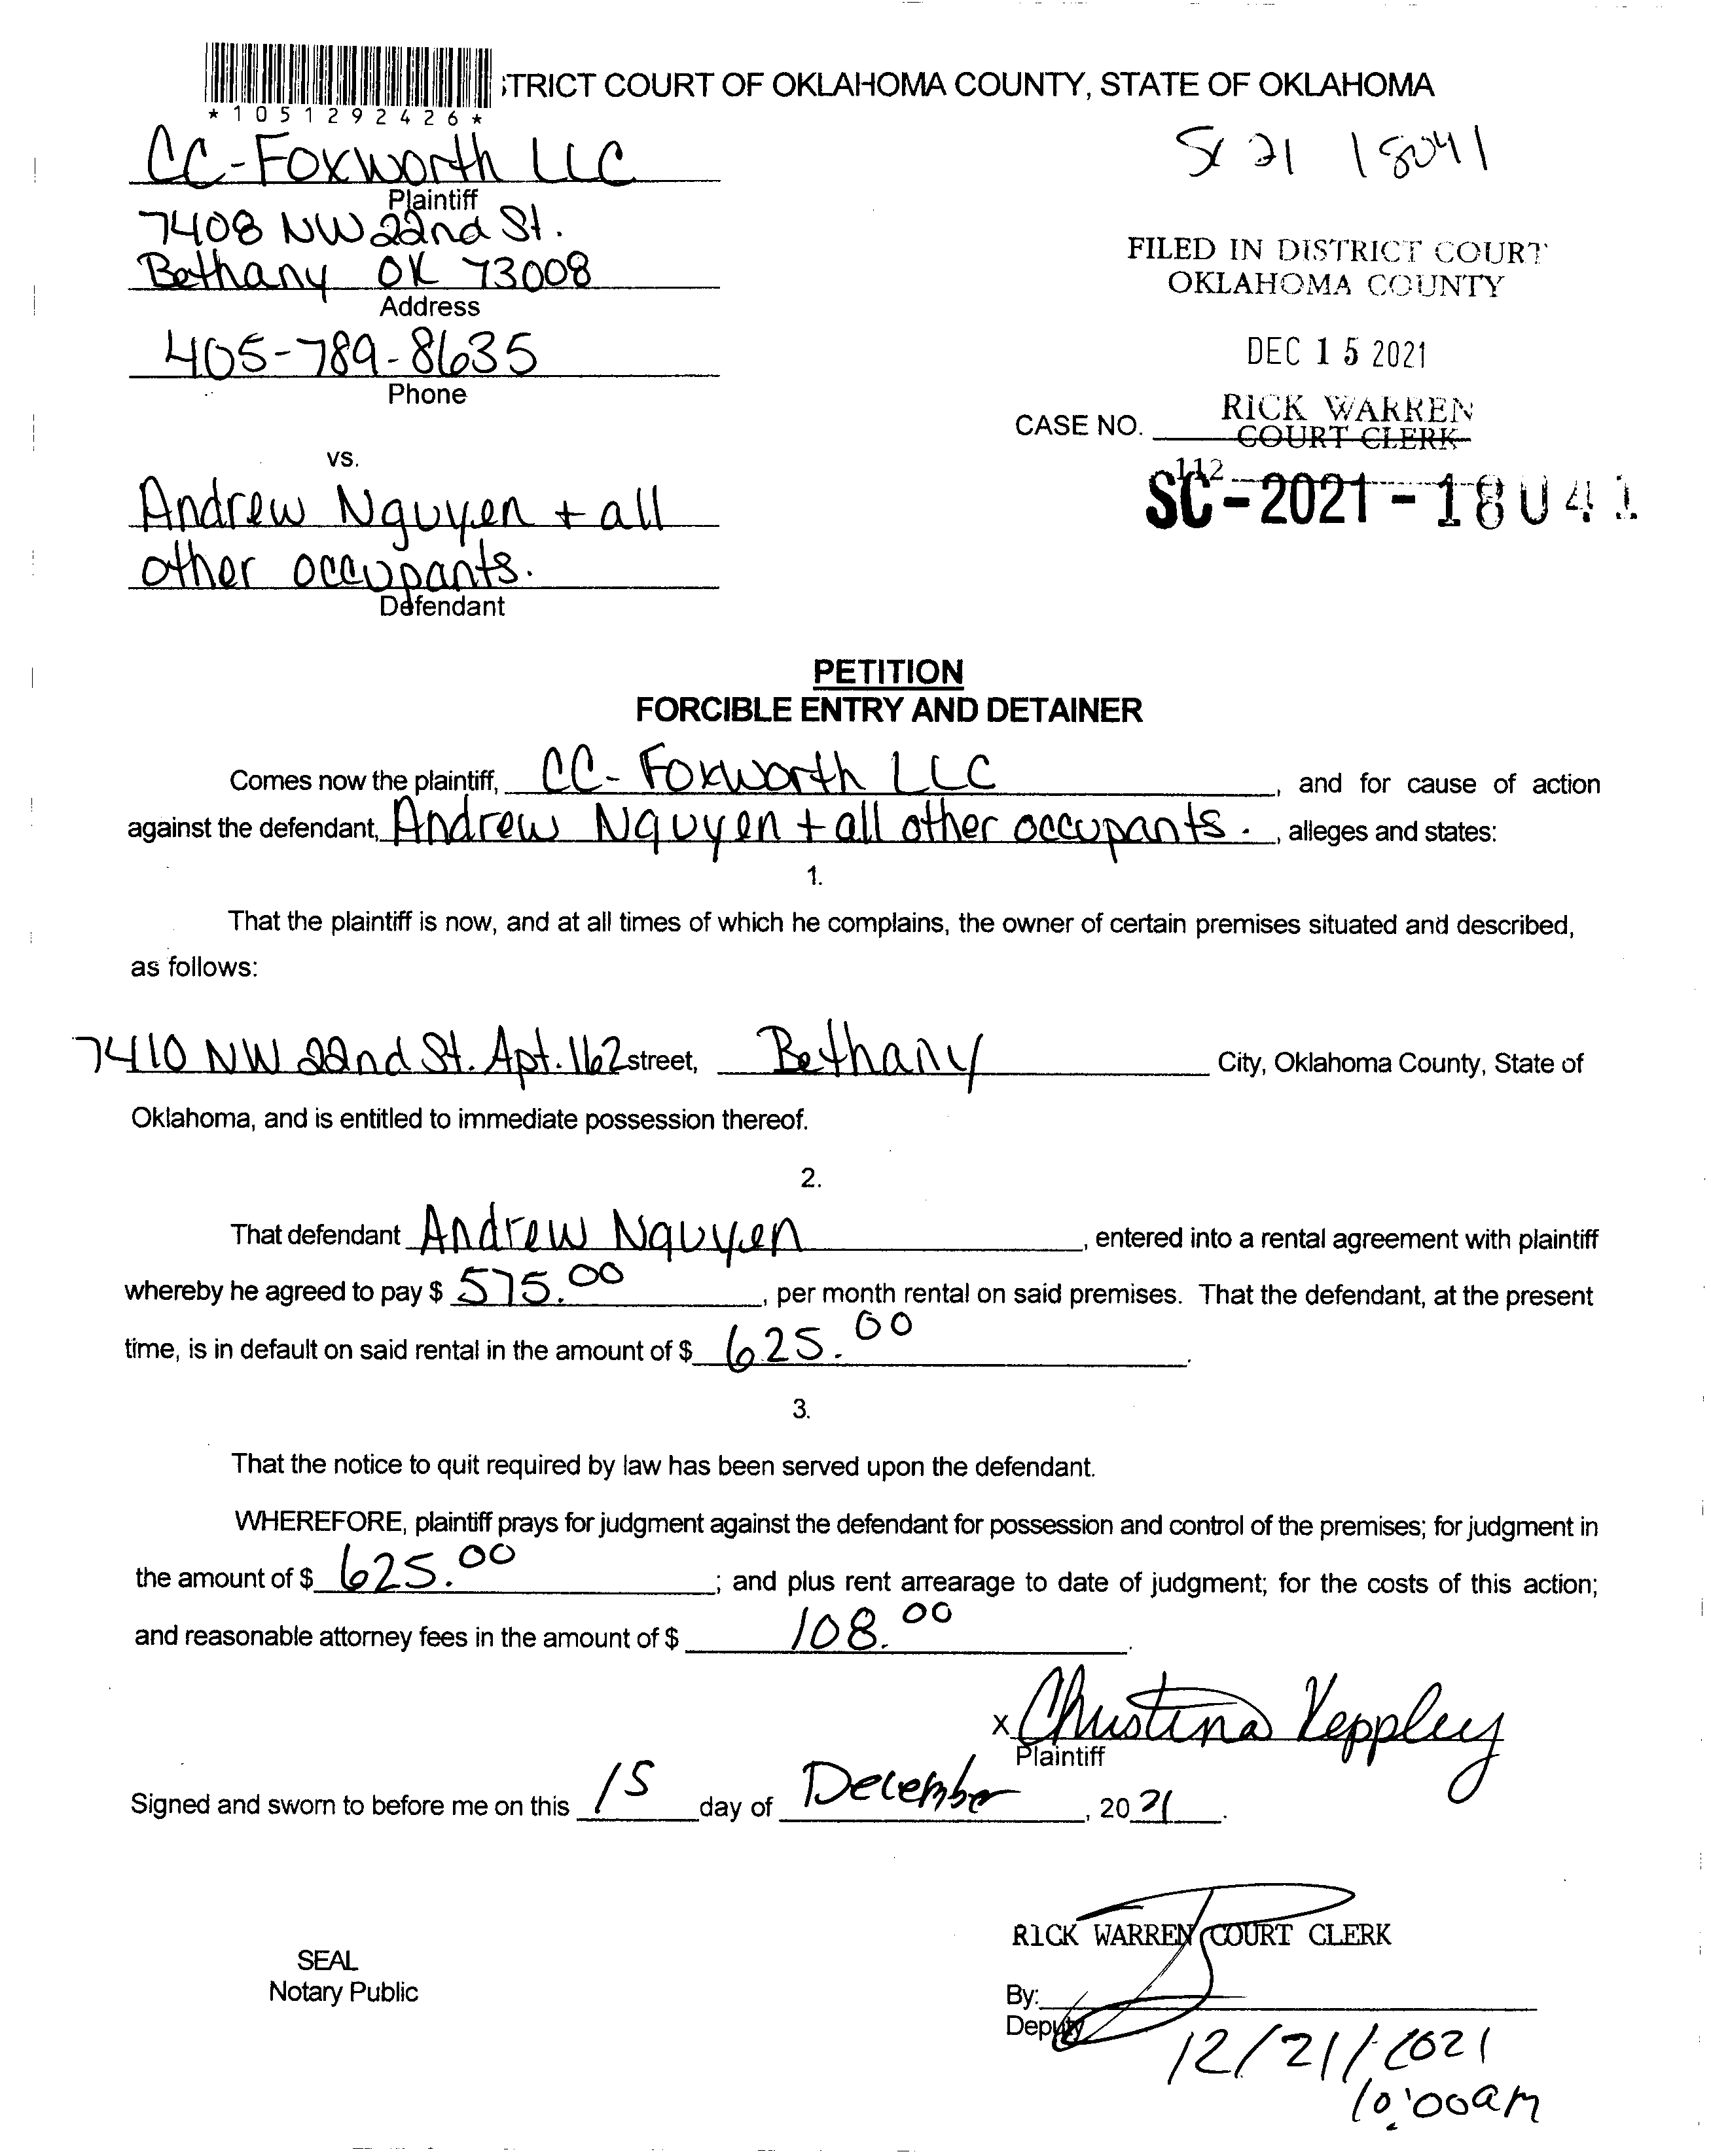 TRICT COURT OF OKLAHOMA COUNTY, STATE OF OKLAHOMA
*1051292426*
CC-Foxworth LLC
Plaintiff
7408 NW 22nd St.
Bethany OK 73008
Address
405-789-8635
Phone
SC 21 18041
FILED IN DISTRICT COURT
OKLAHOMA COUNTY
DEC 15 2021
RICK WARREN
COURT CLERK
CASE NO.
112
SC-2021-18041
vs.
Andrew Nguyen + all
other occupants.
Defendant
PETITION
FORCIBLE ENTRY AND DETAINER
Comes now the plaintiff, CC-Foxworth LLC, and for cause of action
against the defendant, Andrew Nguyen + all other occupants., alleges and states:
1.
That the plaintiff is now, and at all times of which he complains, the owner of certain premises situated and described,
as follows:
7410 NW 22nd St. Apt. 162 street, Bethany City, Oklahoma County, State of
Oklahoma, and is entitled to immediate possession thereof.
2.
That defendant Andrew Nguyen, entered into a rental agreement with plaintiff
whereby he agreed to pay $ 575.00, per month rental on said premises. That the defendant, at the present
time, is in default on said rental in the amount of $ 625.00.
3.
That the notice to quit required by law has been served upon the defendant.
WHEREFORE, plaintiff prays for judgment against the defendant for possession and control of the premises; for judgment in
the amount of $ 625.00; and plus rent arrearage to date of judgment; for the costs of this action;
and reasonable attorney fees in the amount of $ 108.00.
x Christina Keppley
Plaintiff
Signed and sworn to before me on this 15 day of December, 2021.
RICK WARREN COURT CLERK
SEAL
Notary Public
By:
Deputy
12/21/2021
10:00am